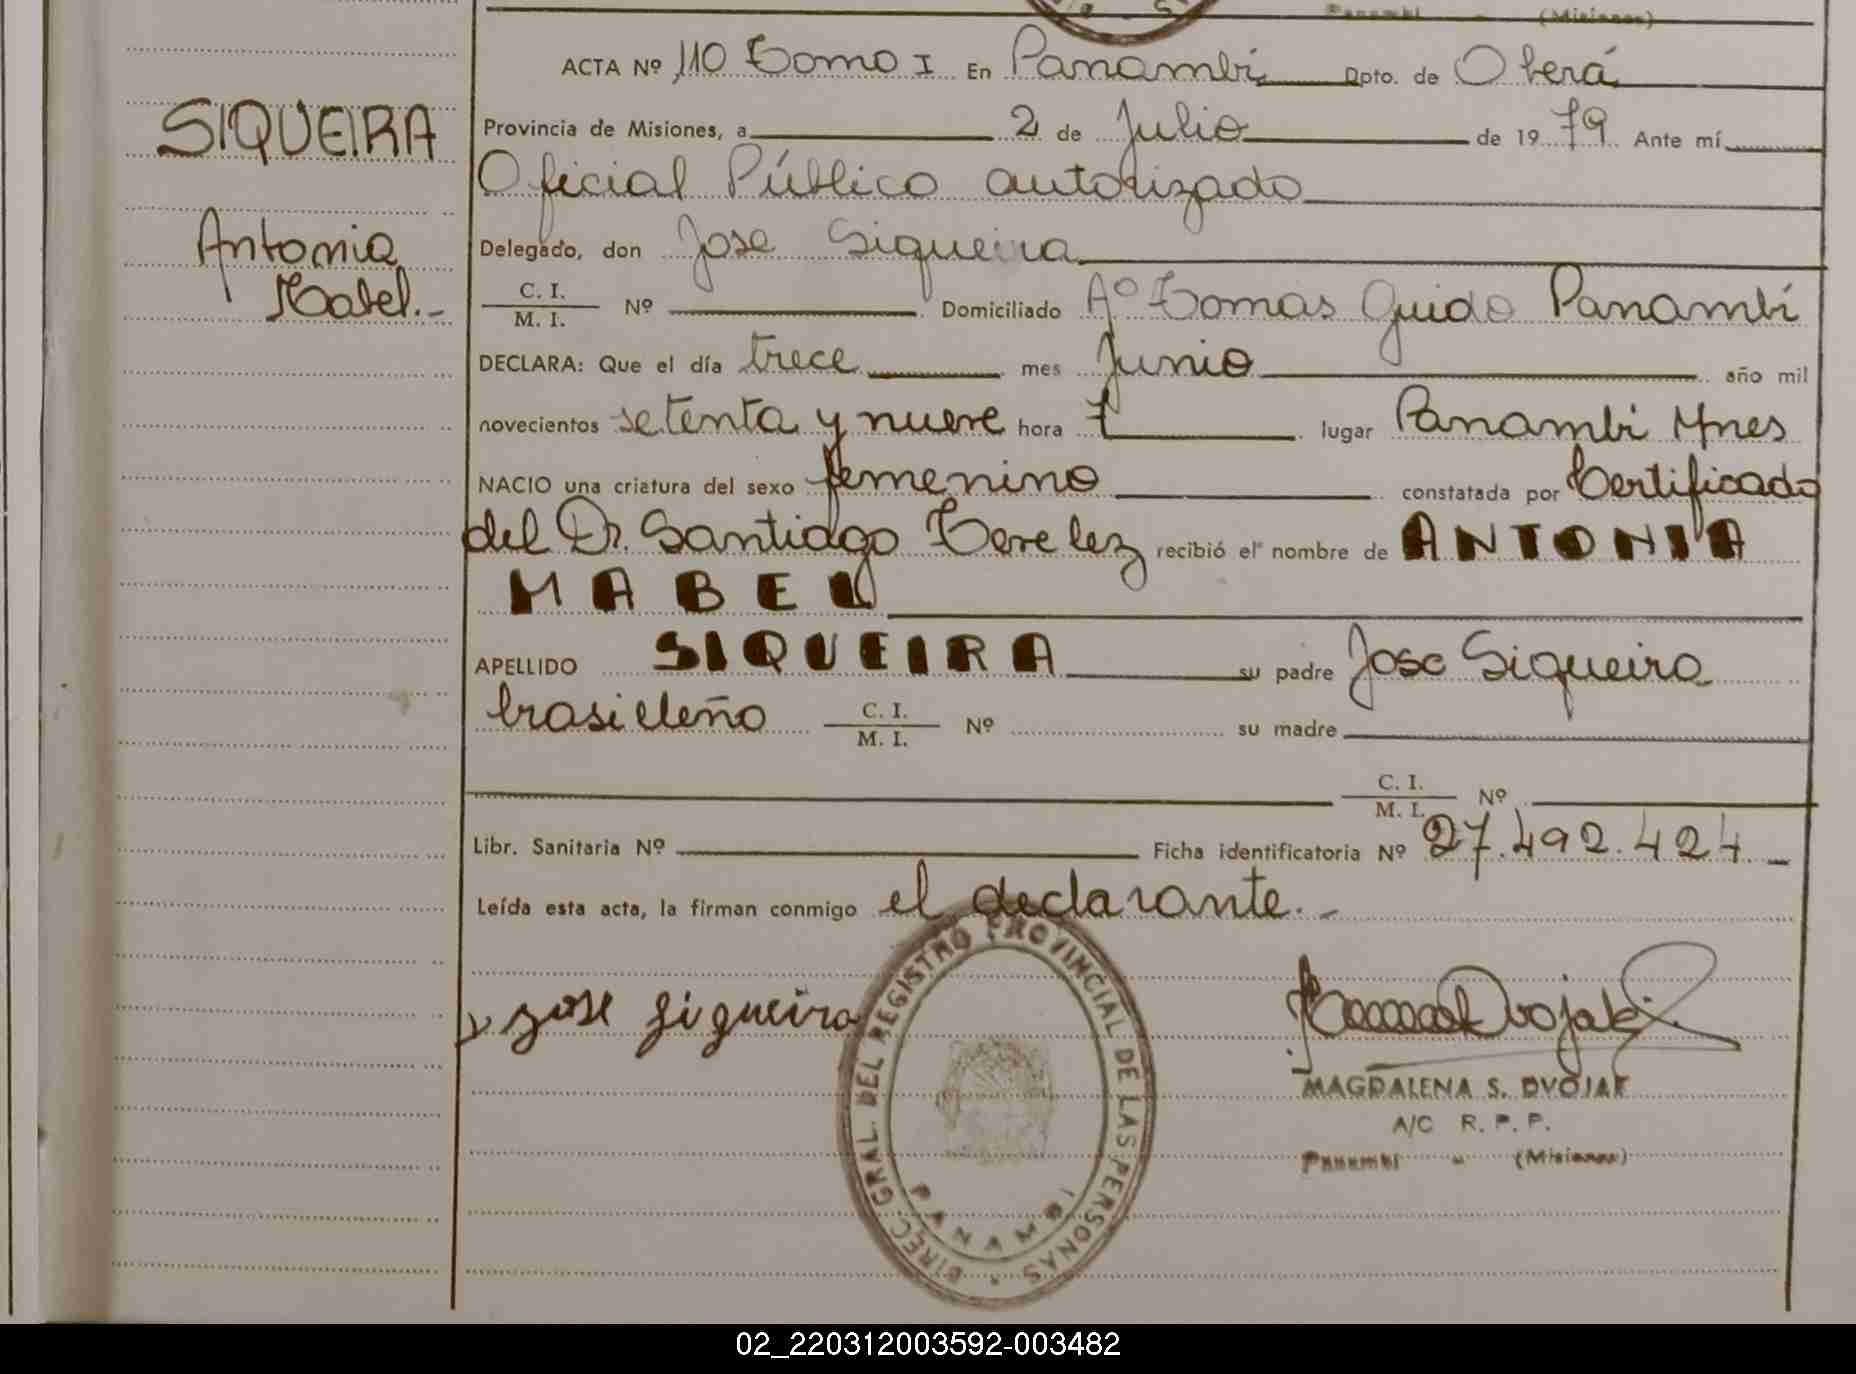 Panambi - (Misiones)
ACTA Nº 110 Tomo I En Panambí Dpto. de Oberá
SIQUEIRA
Provincia de Misiones, a 2 de Julio de 1979 Ante mí
Oficial Público autorizado
Antonia
Delegado, don Jose Siqueira
Mabel.-
C. I.
M. I. Nº Domiciliado Aº Tomas Guido Panambí
DECLARA: Que el día trece mes Junio año mil
novecientos setenta y nueve hora 7 lugar Panambi Mnes
NACIO una criatura del sexo femenino constatada por Certificado
del Dr. Santiago recibió el nombre de ANTONIA
MABEL
APELLIDO SIQUEIRA su padre Jose Siqueira
brasileño C. I.
M. I. Nº su madre
C. I.
M. I. Nº
Libr. Sanitaria Nº Ficha identificatoria Nº 27.492.424
Leída esta acta, la firman conmigo el declarante.-
jose siqueira
DIREC. GRAL. DEL REGISTRO PROVINCIAL DE LAS PERSONAS
PANAMBI
MAGDALENA S. DVOJAK
A/C R. P. P.
Panambi - (Misiones)
02_220312003592-003482